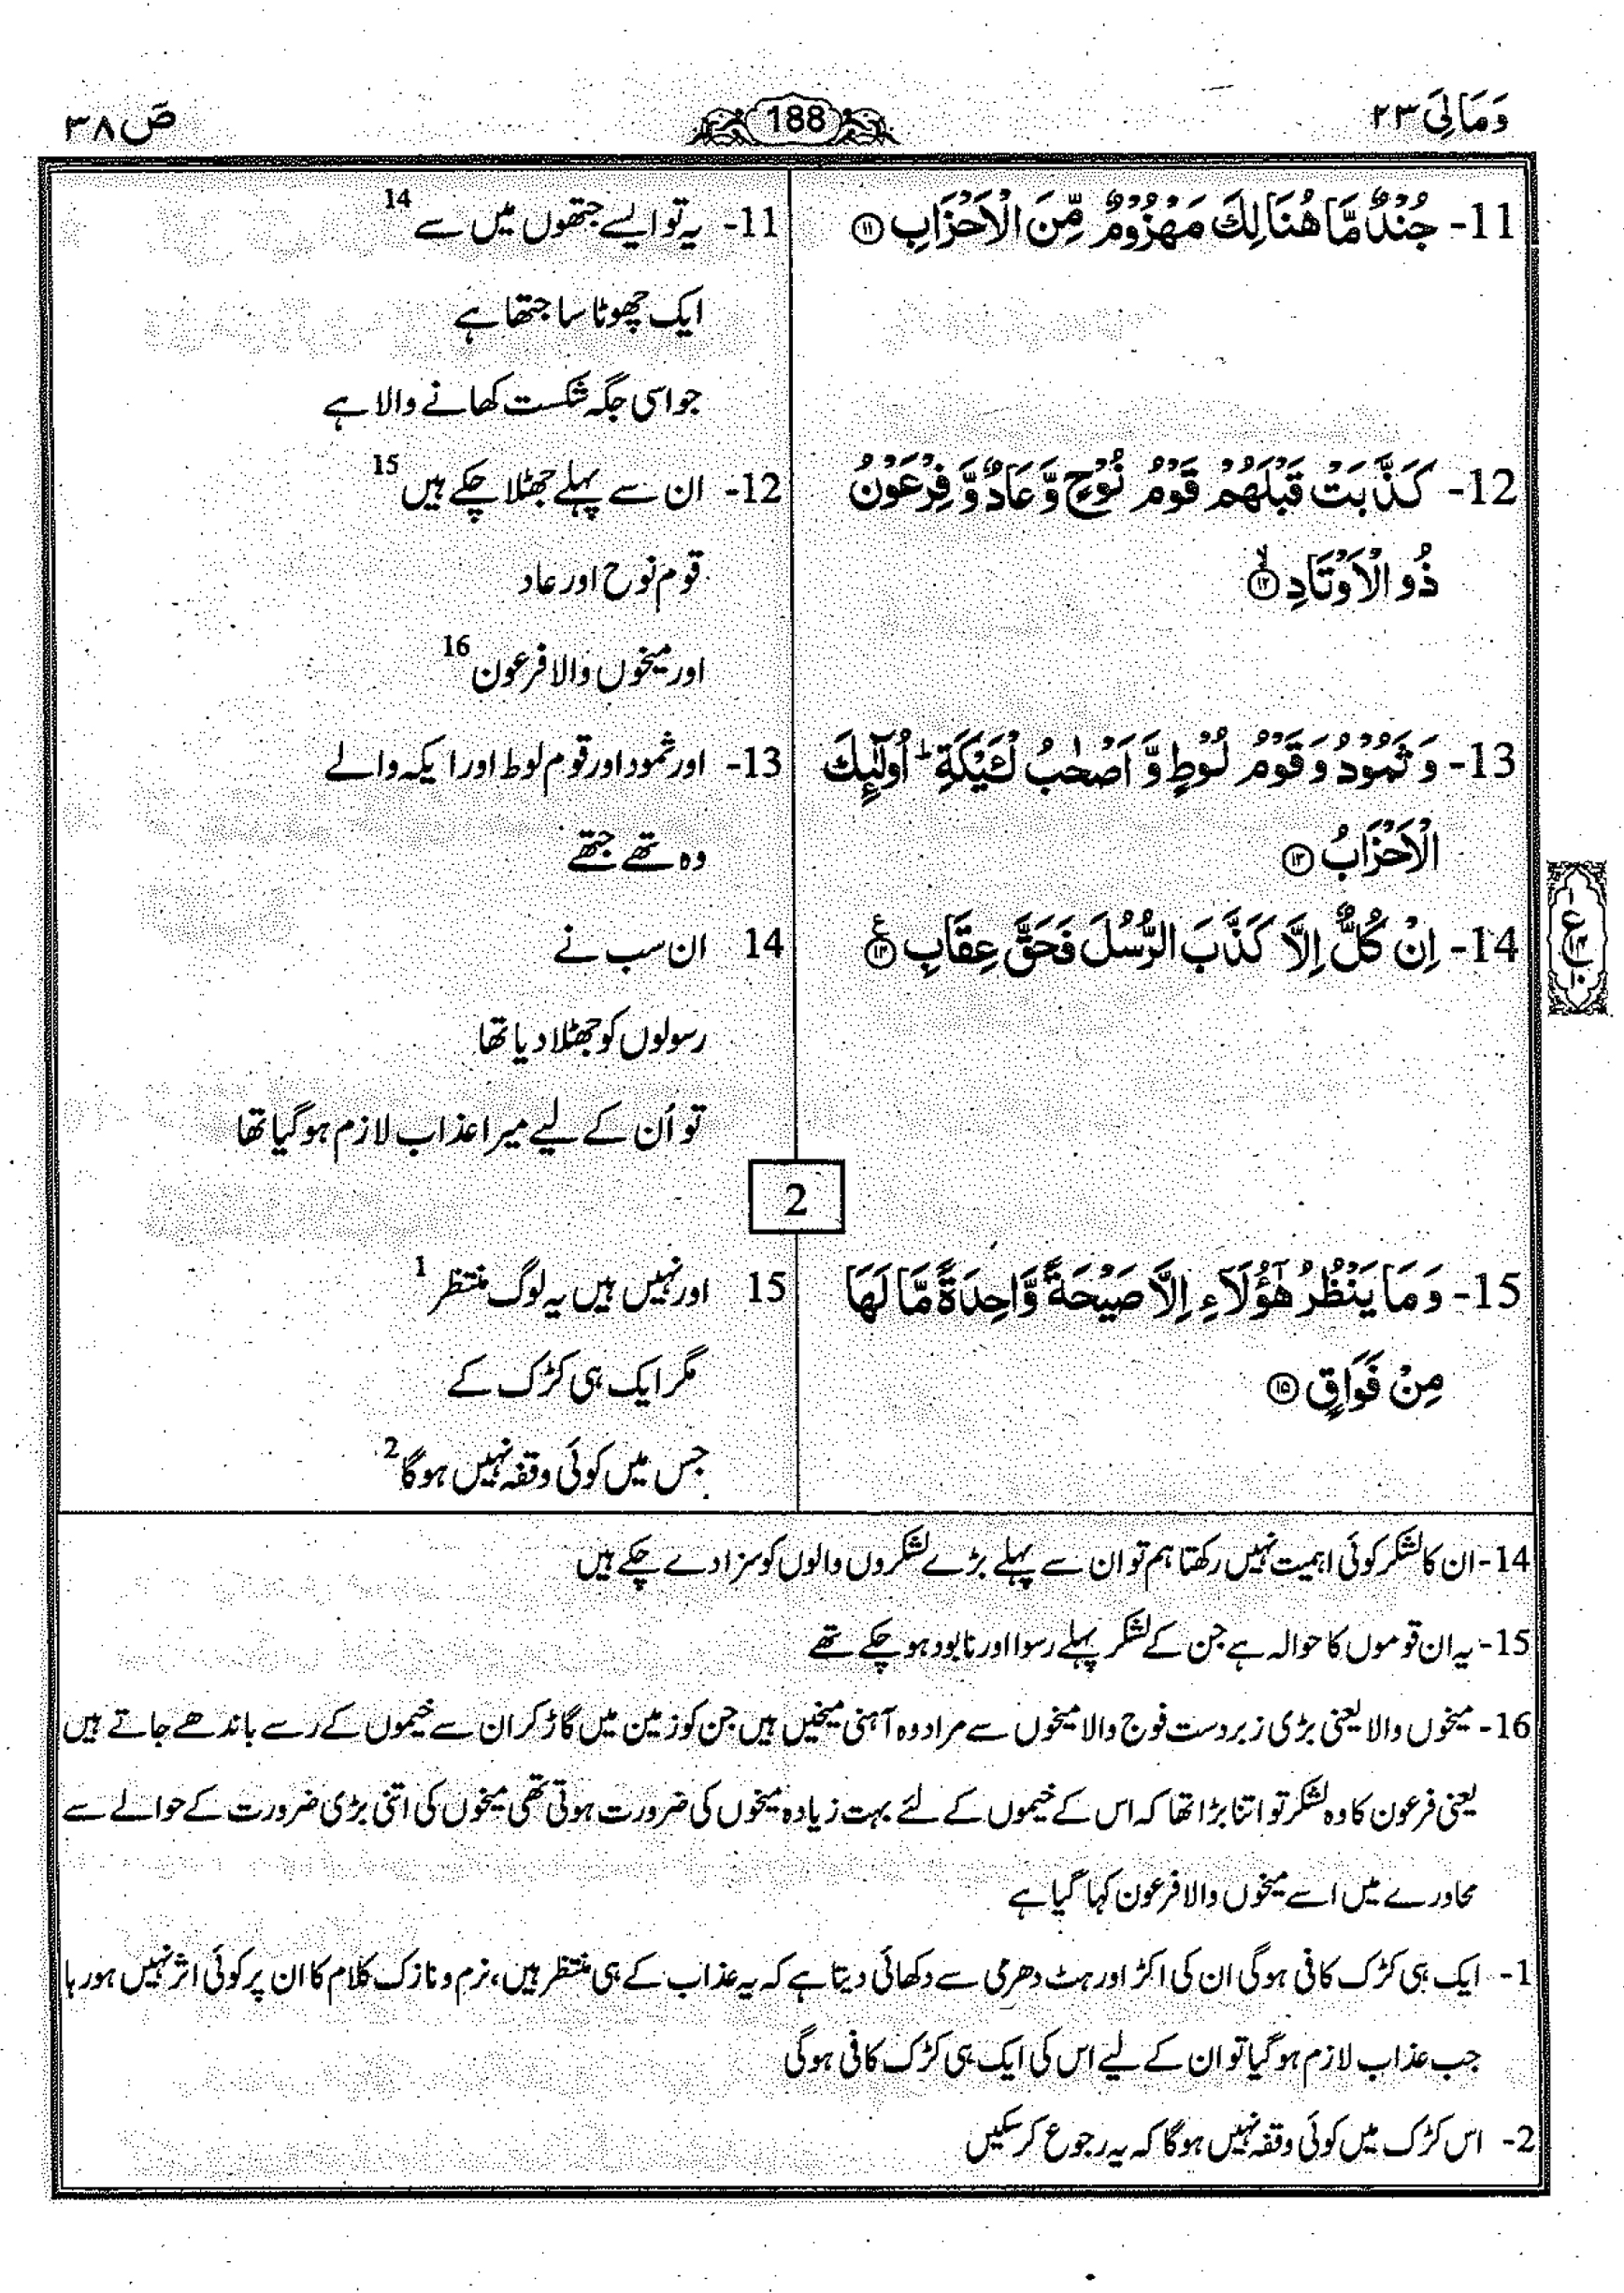 وَمَالِیَ ۲۳
188
صٓ ۳۸
11- جُنْدٌ مَّا هُنَالِكَ مَهْزُوْمٌ مِّنَ الْاَحْزَابِ ⑪
11- یہ تو ایسے جتھوں میں سے 14
ایک چھوٹا سا جتھا ہے
جو اسی جگہ شکست کھانے والا ہے
12- كَذَّبَتْ قَبْلَهُمْ قَوْمُ نُوْحٍ وَّ عَادٌ وَّ فِرْعَوْنُ
ذُو الْاَوْتَادِ ⑫
12- ان سے پہلے جھٹلا چکے ہیں 15
قوم نوح اور عاد
اور میخوں والا فرعون 16
13- وَ ثَمُوْدُ وَ قَوْمُ لُوْطٍ وَّ اَصْحٰبُ لْـَٔیْكَةِ ؕ اُولٰٓئِكَ
الْاَحْزَابُ ⑬
13- اور ثمود اور قوم لوط اور ایکہ والے
وہ تھے جتھے
14- اِنْ كُلٌّ اِلَّا كَذَّبَ الرُّسُلَ فَحَقَّ عِقَابِ ⑭
14 ان سب نے
رسولوں کو جھٹلا دیا تھا
تو اُن کے لیے میرا عذاب لازم ہو گیا تھا
2
15- وَ مَا یَنْظُرُ هٰۤؤُلَآءِ اِلَّا صَیْحَةً وَّاحِدَةً مَّا لَهَا
مِنْ فَوَاقٍ ⑮
15 اور نہیں ہیں یہ لوگ منتظر 1
مگر ایک ہی کڑک کے
جس میں کوئی وقفہ نہیں ہوگا 2
14- ان کا لشکر کوئی اہمیت نہیں رکھتا ہم تو ان سے پہلے بڑے لشکروں والوں کو سزا دے چکے ہیں
15- یہ ان قوموں کا حوالہ ہے جن کے لشکر پہلے رسوا اور نابود ہو چکے تھے
16- میخوں والا یعنی بڑی زبردست فوج والا میخوں سے مراد وہ آہنی میخیں ہیں جن کو زمین میں گاڑ کر ان سے خیموں کے رسے باندھے جاتے ہیں
یعنی فرعون کا وہ لشکر تو اتنا بڑا تھا کہ اس کے خیموں کے لئے بہت زیادہ میخوں کی ضرورت ہوتی تھی میخوں کی اتنی بڑی ضرورت کے حوالے سے
محاورے میں اسے میخوں والا فرعون کہا گیا ہے
1- ایک ہی کڑک کافی ہوگی ان کی اکڑ اور ہٹ دھرمی سے دکھائی دیتا ہے کہ یہ عذاب کے ہی منتظر ہیں، نرم و نازک کلام کا ان پر کوئی اثر نہیں ہو رہا
جب عذاب لازم ہو گیا تو ان کے لیے اس کی ایک ہی کڑک کافی ہوگی
2- اس کڑک میں کوئی وقفہ نہیں ہوگا کہ یہ رجوع کر سکیں